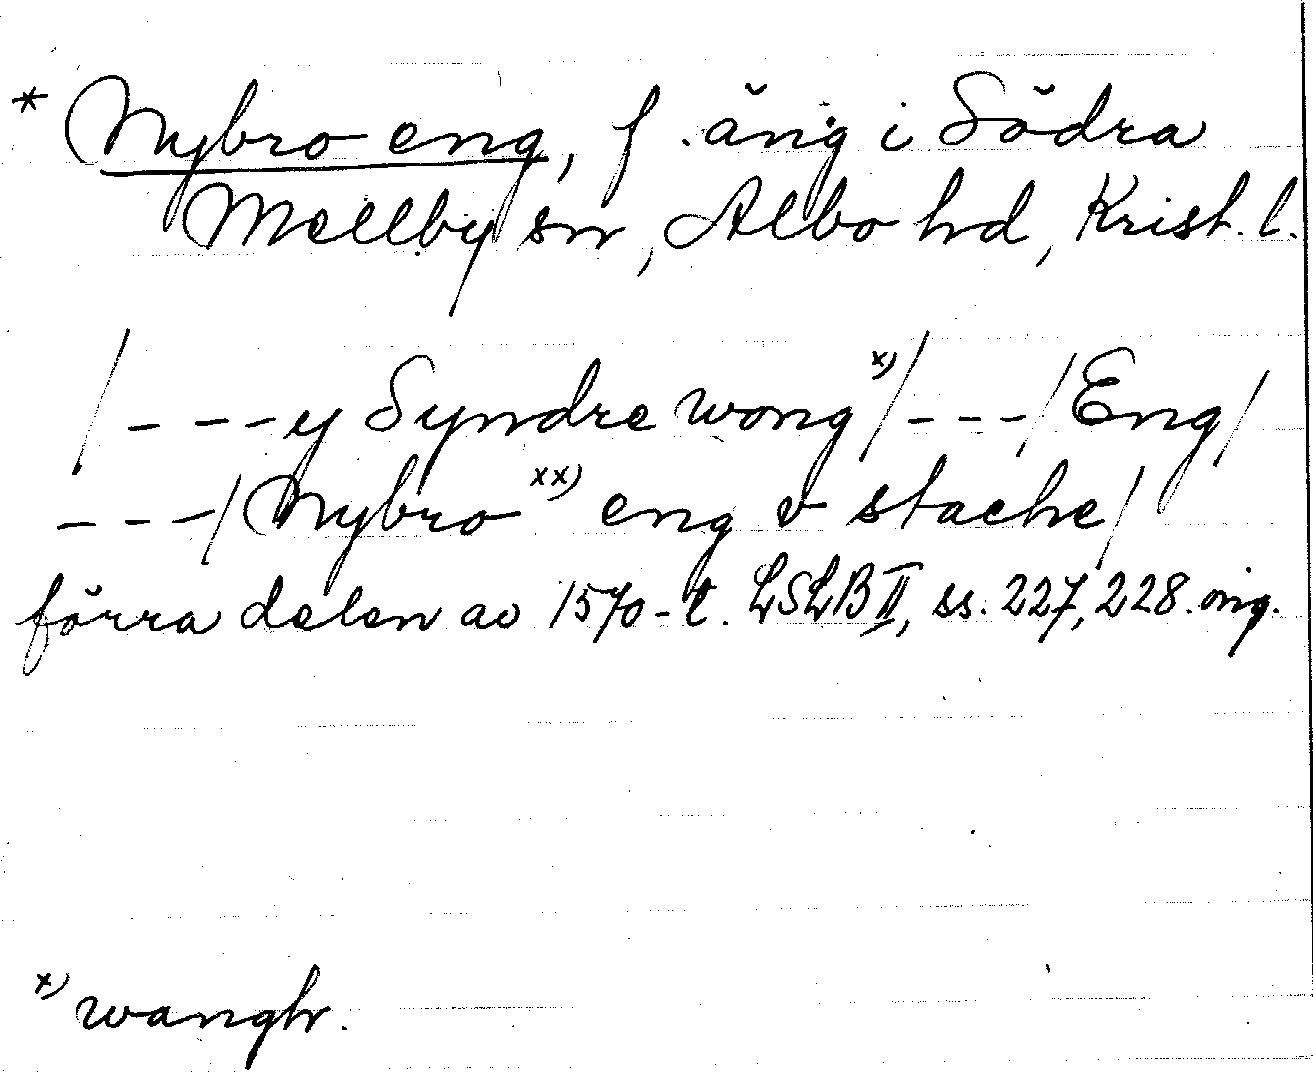 * Nybro eng, f. äng i Södra
Mellby sn, Albo hd, Krist. l.
/---y Syndre wong x)/---/Eng/
---/Nybro xx) eng v stacke/
förra delen av 1570-t. LSLB II, ss. 227, 228. orig.
x) wangh.